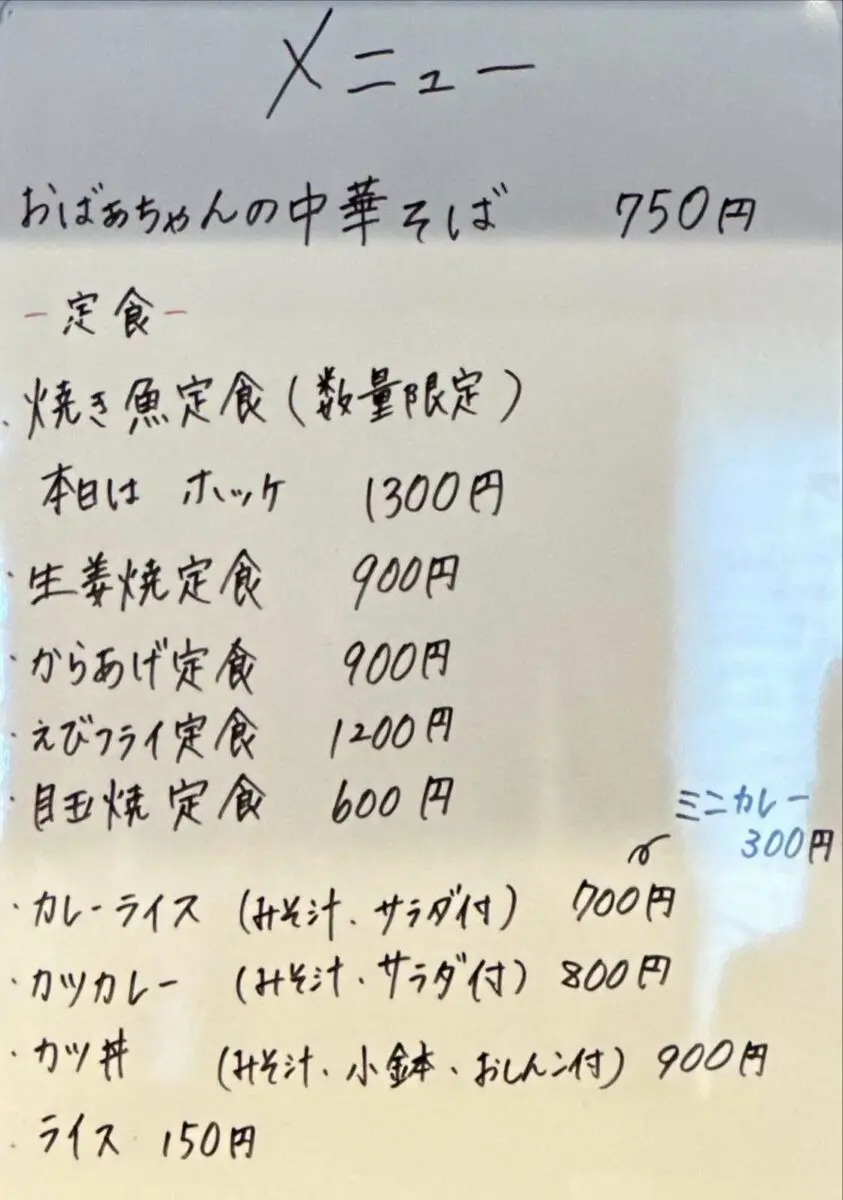 メニュー
おばあちゃんの中華そば 750円
-定食-
・焼き魚定食(数量限定)
本日は ホッケ 1300円
・生姜焼定食 900円
・からあげ定食 900円
・えびフライ定食 1200円
・目玉焼定食 600円
ミニカレー
300円
・カレーライス (みそ汁、サラダ付) 700円
・カツカレー (みそ汁、サラダ付) 800円
・カツ丼 (みそ汁、小鉢、おしんこ付) 900円
・ライス 150円